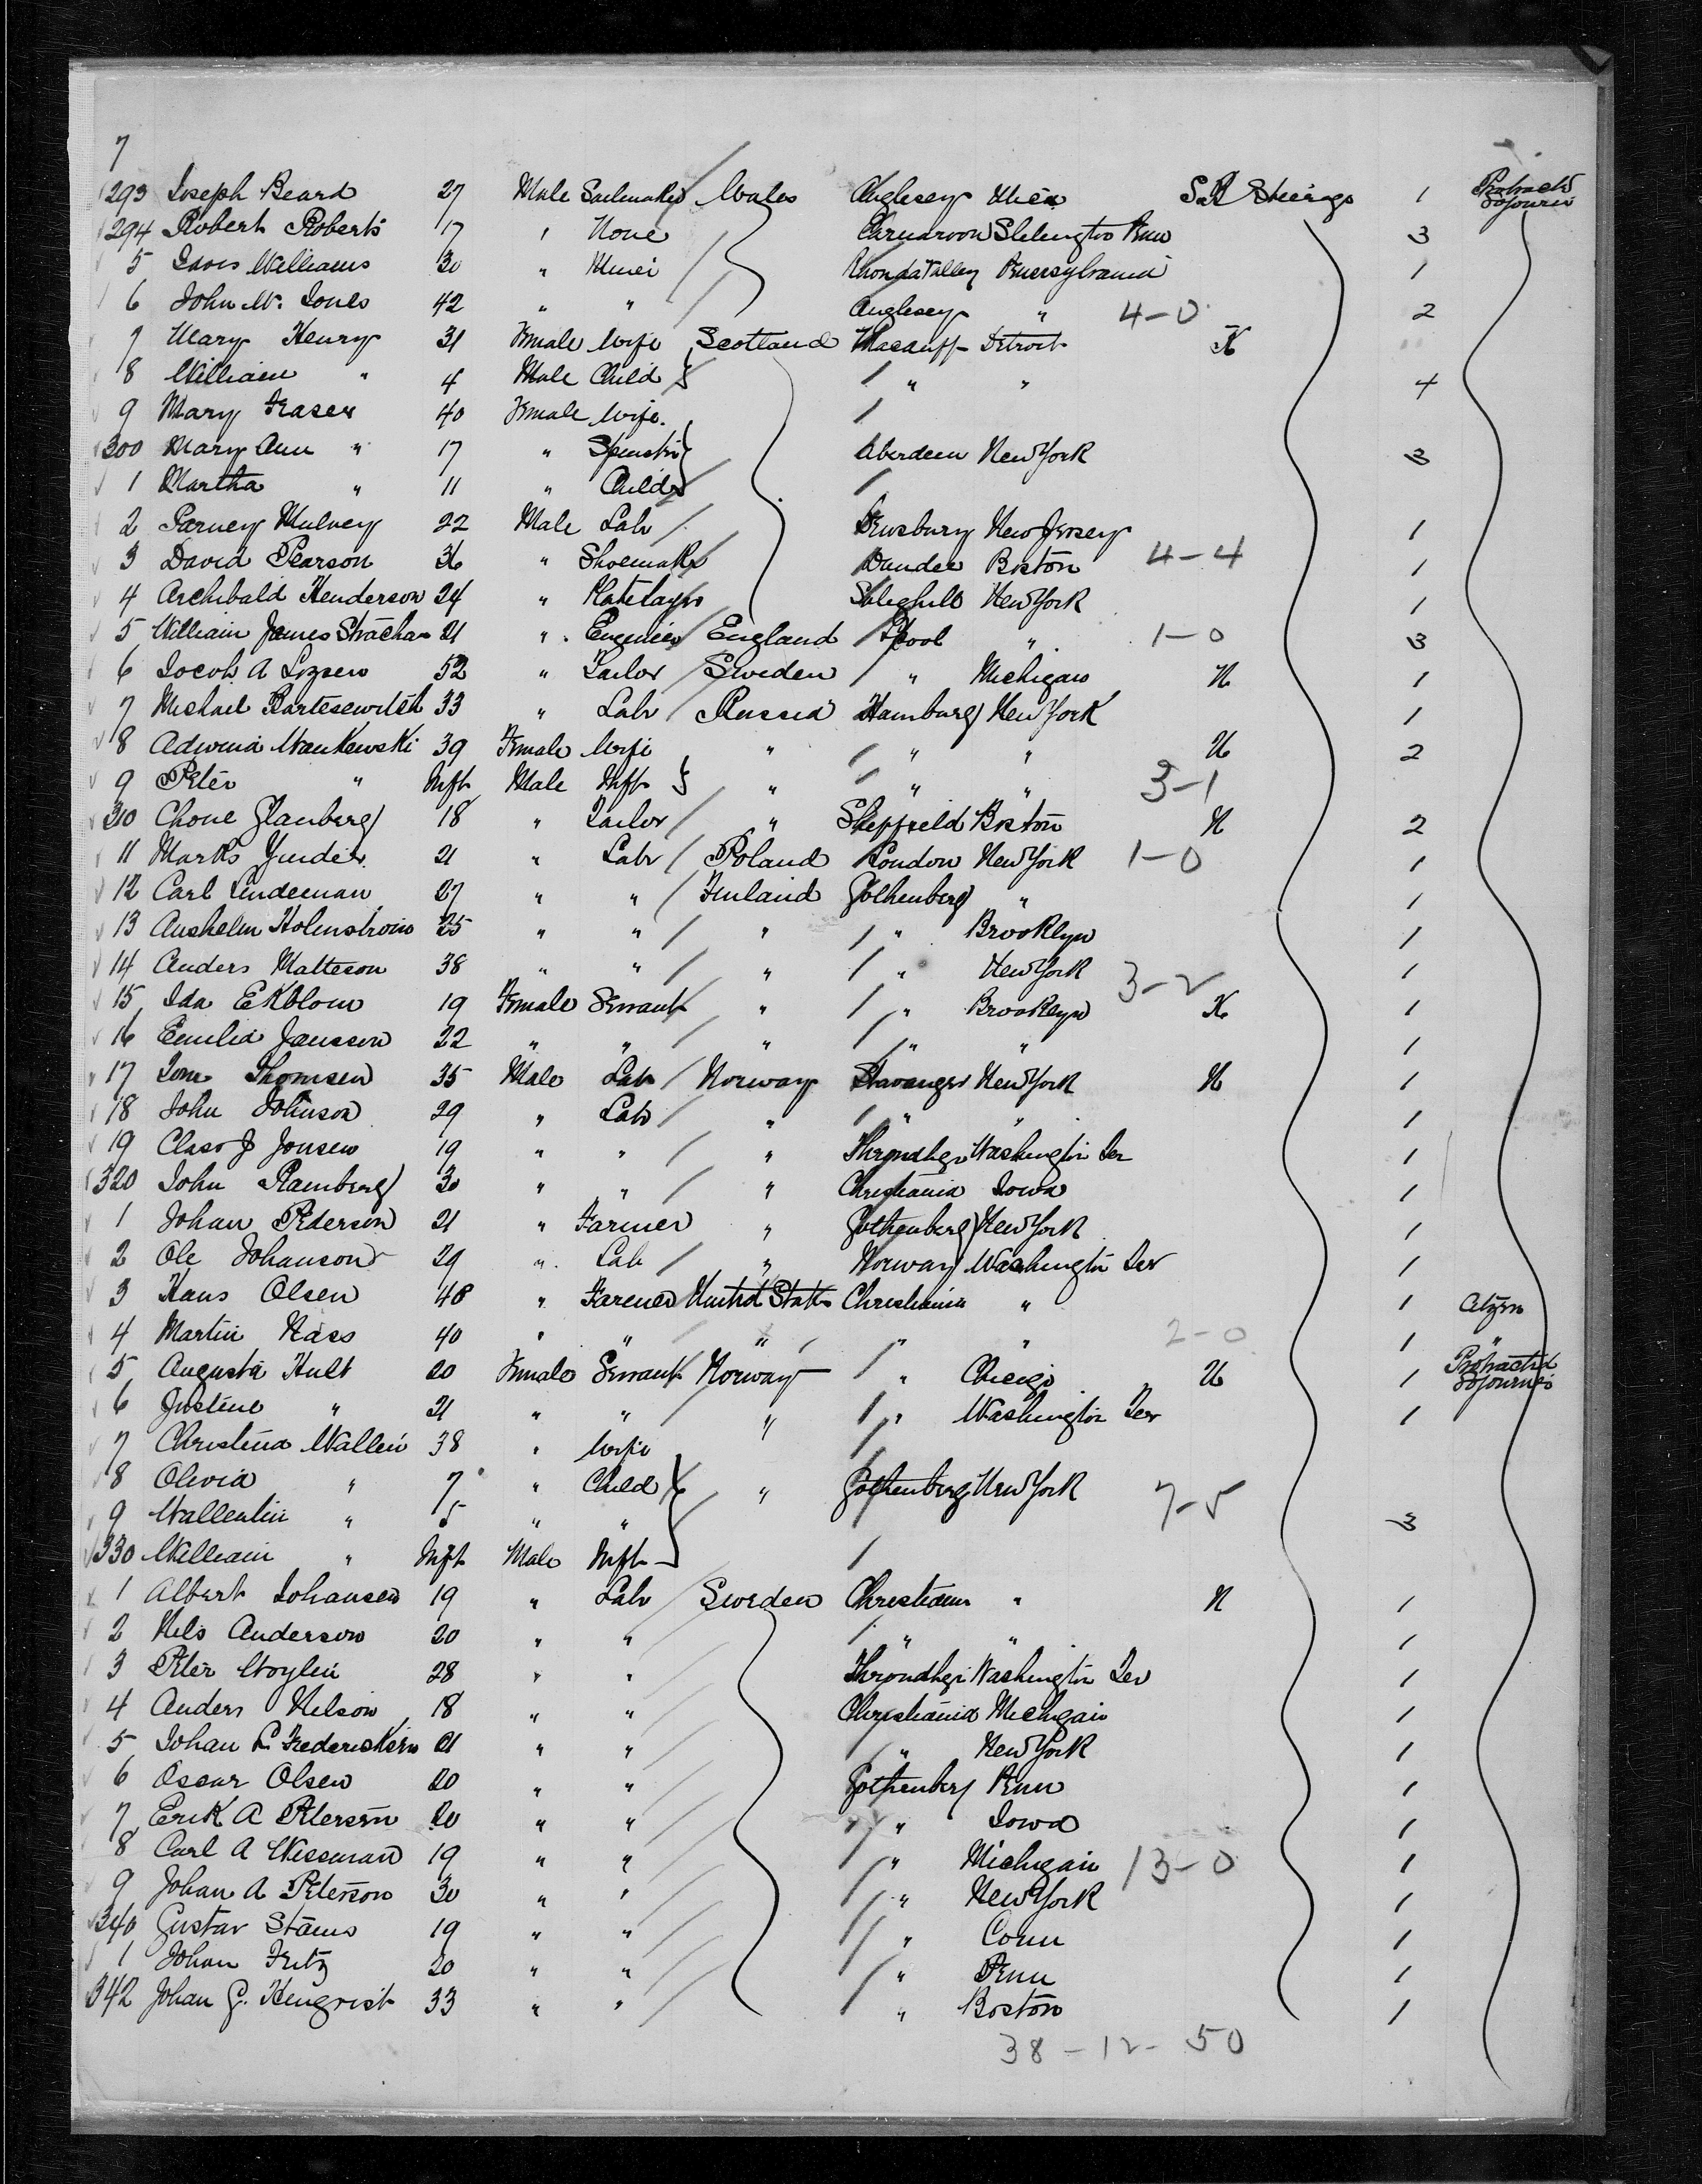 7
293 Joseph Beard 27 Male Sailmaker Wales Anglesey Utica S.R Steerage 1 Protracted Sojourn
294 Robert Roberts 17 " None Carnarvon Slatington Penn 3
5 Davis Williams 30 " Miner Rhondda Valley Pennsylvania 1
6 John W. Jones 42 " " Anglesey " 4-0 2
7 Mary Henry 31 Female Wife Scotland Macduff Detroit N
8 William " 4 Male Child " " 4
9 Mary Fraser 40 Female Wife
300 Mary Ann " 17 " Spinster Aberdeen New York 3
1 Martha " 11 " Child
2 Parney Mulvey 22 Male Lab Dewsbury New Jersey 1
3 David Pearson 36 " Shoemaker Dundee Boston 4-4 1
4 Archibald Henderson 24 " New York 1
5 William James Strachan 21 " Engineer England L'pool " 1-0 3
6 Jacob A 52 " Tailor Sweden " Michigan N 1
7 Michael Bartesewitch 33 " Lab Russia Hamburg New York 1
8 Adwina Wankewski 39 Female Wife " " " N 2
9 Peter " Inft Male Inft " " " 3-1
310 Chone Glanberg 18 " Tailor " Sheffield Boston N 2
11 Marks Yuder 21 " Lab Poland London New York 1-0 1
12 Carl Lindeman 27 " " Finland Gothenberg " 1
13 Anshelm Holmstrom 25 " " " " Brooklyn 1
14 Anders Matteson 38 " " " " New York 3-2 1
15 Ida Ekblom 19 Female Servant " " Brooklyn N 1
16 Emilia Jansson 22 " " " " " 1
17 Thomsen 35 Male Lab Norway Stavanger New York N 1
18 John Johnson 29 " Lab " " " 1
19 Claso J Jonsen 19 " " " Throndhgn Washington Ter 1
320 John Ramberg 30 " " " Christiania Iowa 1
1 Johan Pederson 21 " Farmer " Gothenberg New York 1
2 Ole Johanson 29 " Lab " Norway Washington Ter 1
3 Hans Olsen 48 " Farmer United States Christiania " 1 Citizen
4 Martin Naes 40 " " " " " 2-0 1 "
5 Augusta Hult 20 Female Servant Norway " Chicago N 1 Protracted Sojourn
6 Justine " 21 " " " " Washington Ter 1
7 Christina Wallin 38 " Wife
8 Olivia " 7 " Child " Gothenberg New York 7-5
9 Wallentin " 5 " " 3
330 William " Inft Male Inft
1 Albert Johansen 19 " Lab Sweden Christiania " N 1
2 Nels Anderson 20 " " " " 1
3 Peter Woylin 28 " " Throndhgn Washington Ter 1
4 Anders Nelson 18 " " Christiania Michigan 1
5 Johan L Frederiksen 21 " " " New York 1
6 Oscar Olsen 20 " " Gothenberg Penn 1
7 Erik A Peterson 20 " " " Iowa 1
8 Carl A Wissman 19 " " " Michigan 13-0 1
9 Johan A Peterson 30 " " " New York 1
340 Gustav Stams 19 " " " Conn 1
1 Johan Fritz 20 " " " Penn 1
342 Johan G. Hengvist 33 " " " Boston 1
38-12-50